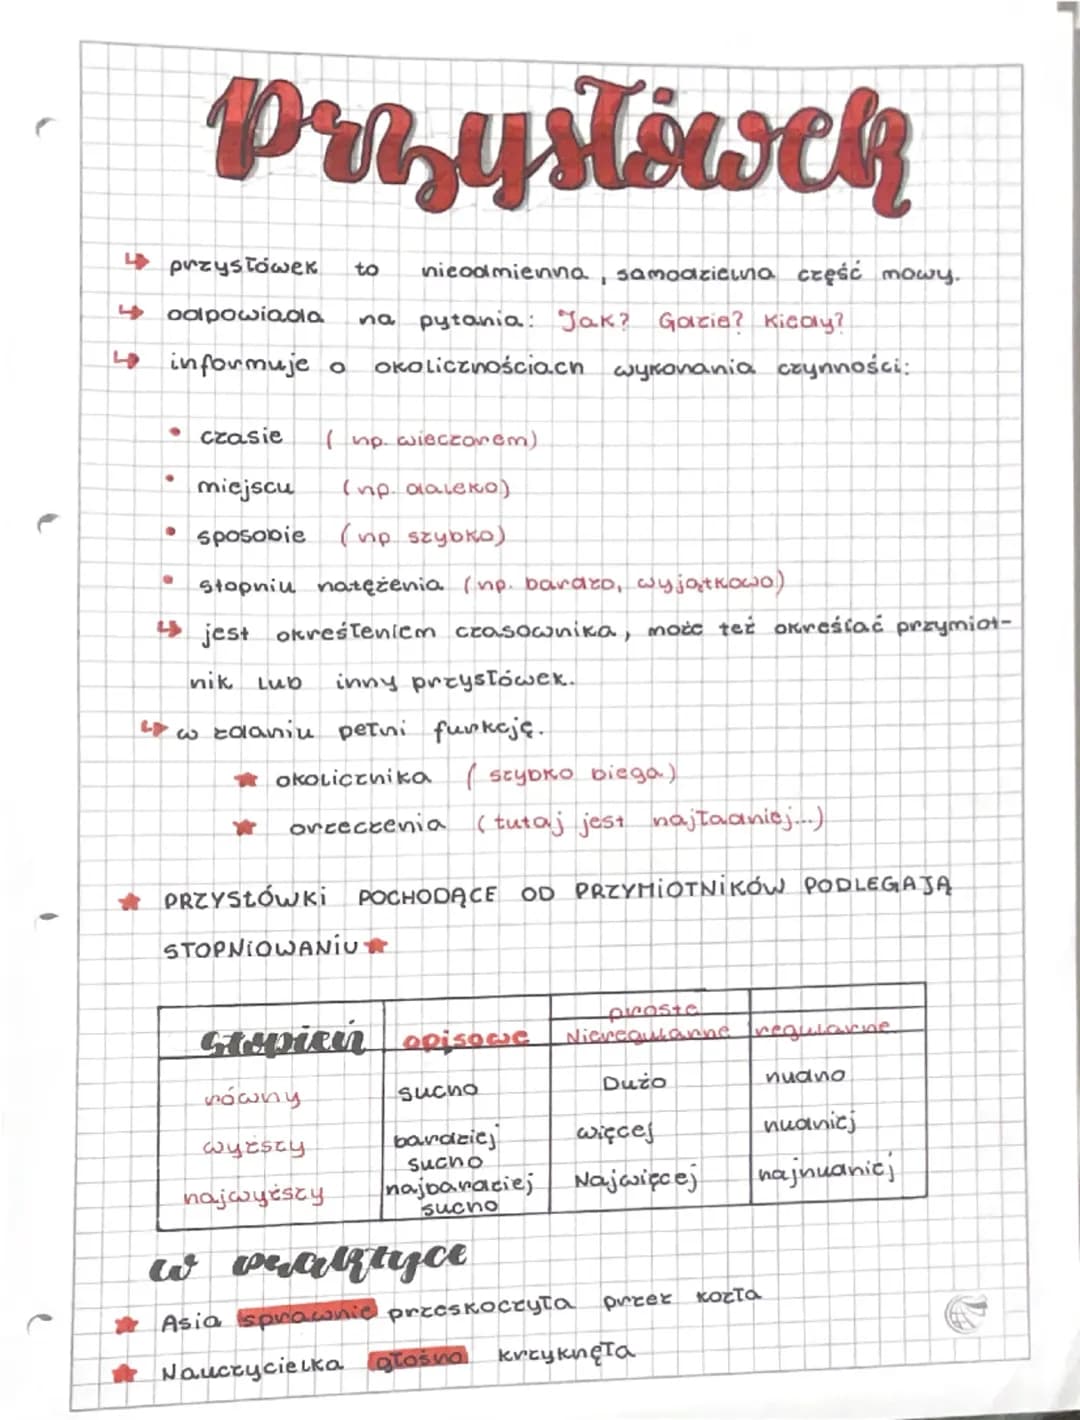 Przysłówek
przysłówek to nieodmienna, samodzielna część mowy.
odpowiada na pytania: Jak? Gdzie? Kiedy?
informuje o okolicznościach wykonania czynności:
czasie (np. wieczorem)
miejscu (np. daleko)
sposobie (np szybko)
stopniu natężenia (np. bardzo, wyjątkowo)
jest określeniem czasownika, może też określać przymiot-
nik lub inny przysłówek.
w zdaniu pełni funkcję.
okolicznika (szybko biega)
orzeczenia (tutaj jest najładniej...)
PRZYSŁÓWKi POCHODĄCE OD PRZYMiOTNiKÓW PODLEGAJĄ
STOPNiOWANiU
proste
Stopień opisowe Nieregularne regularne
równy sucho Dużo nudno
wyższy bardziej sucho więcej nudniej
najwyższy najbardziej sucho Najwięcej najnudniej
w praktyce
Asia sprawnie przeskoczyła przez kozła
Nauczycielka głośno krzyknęła